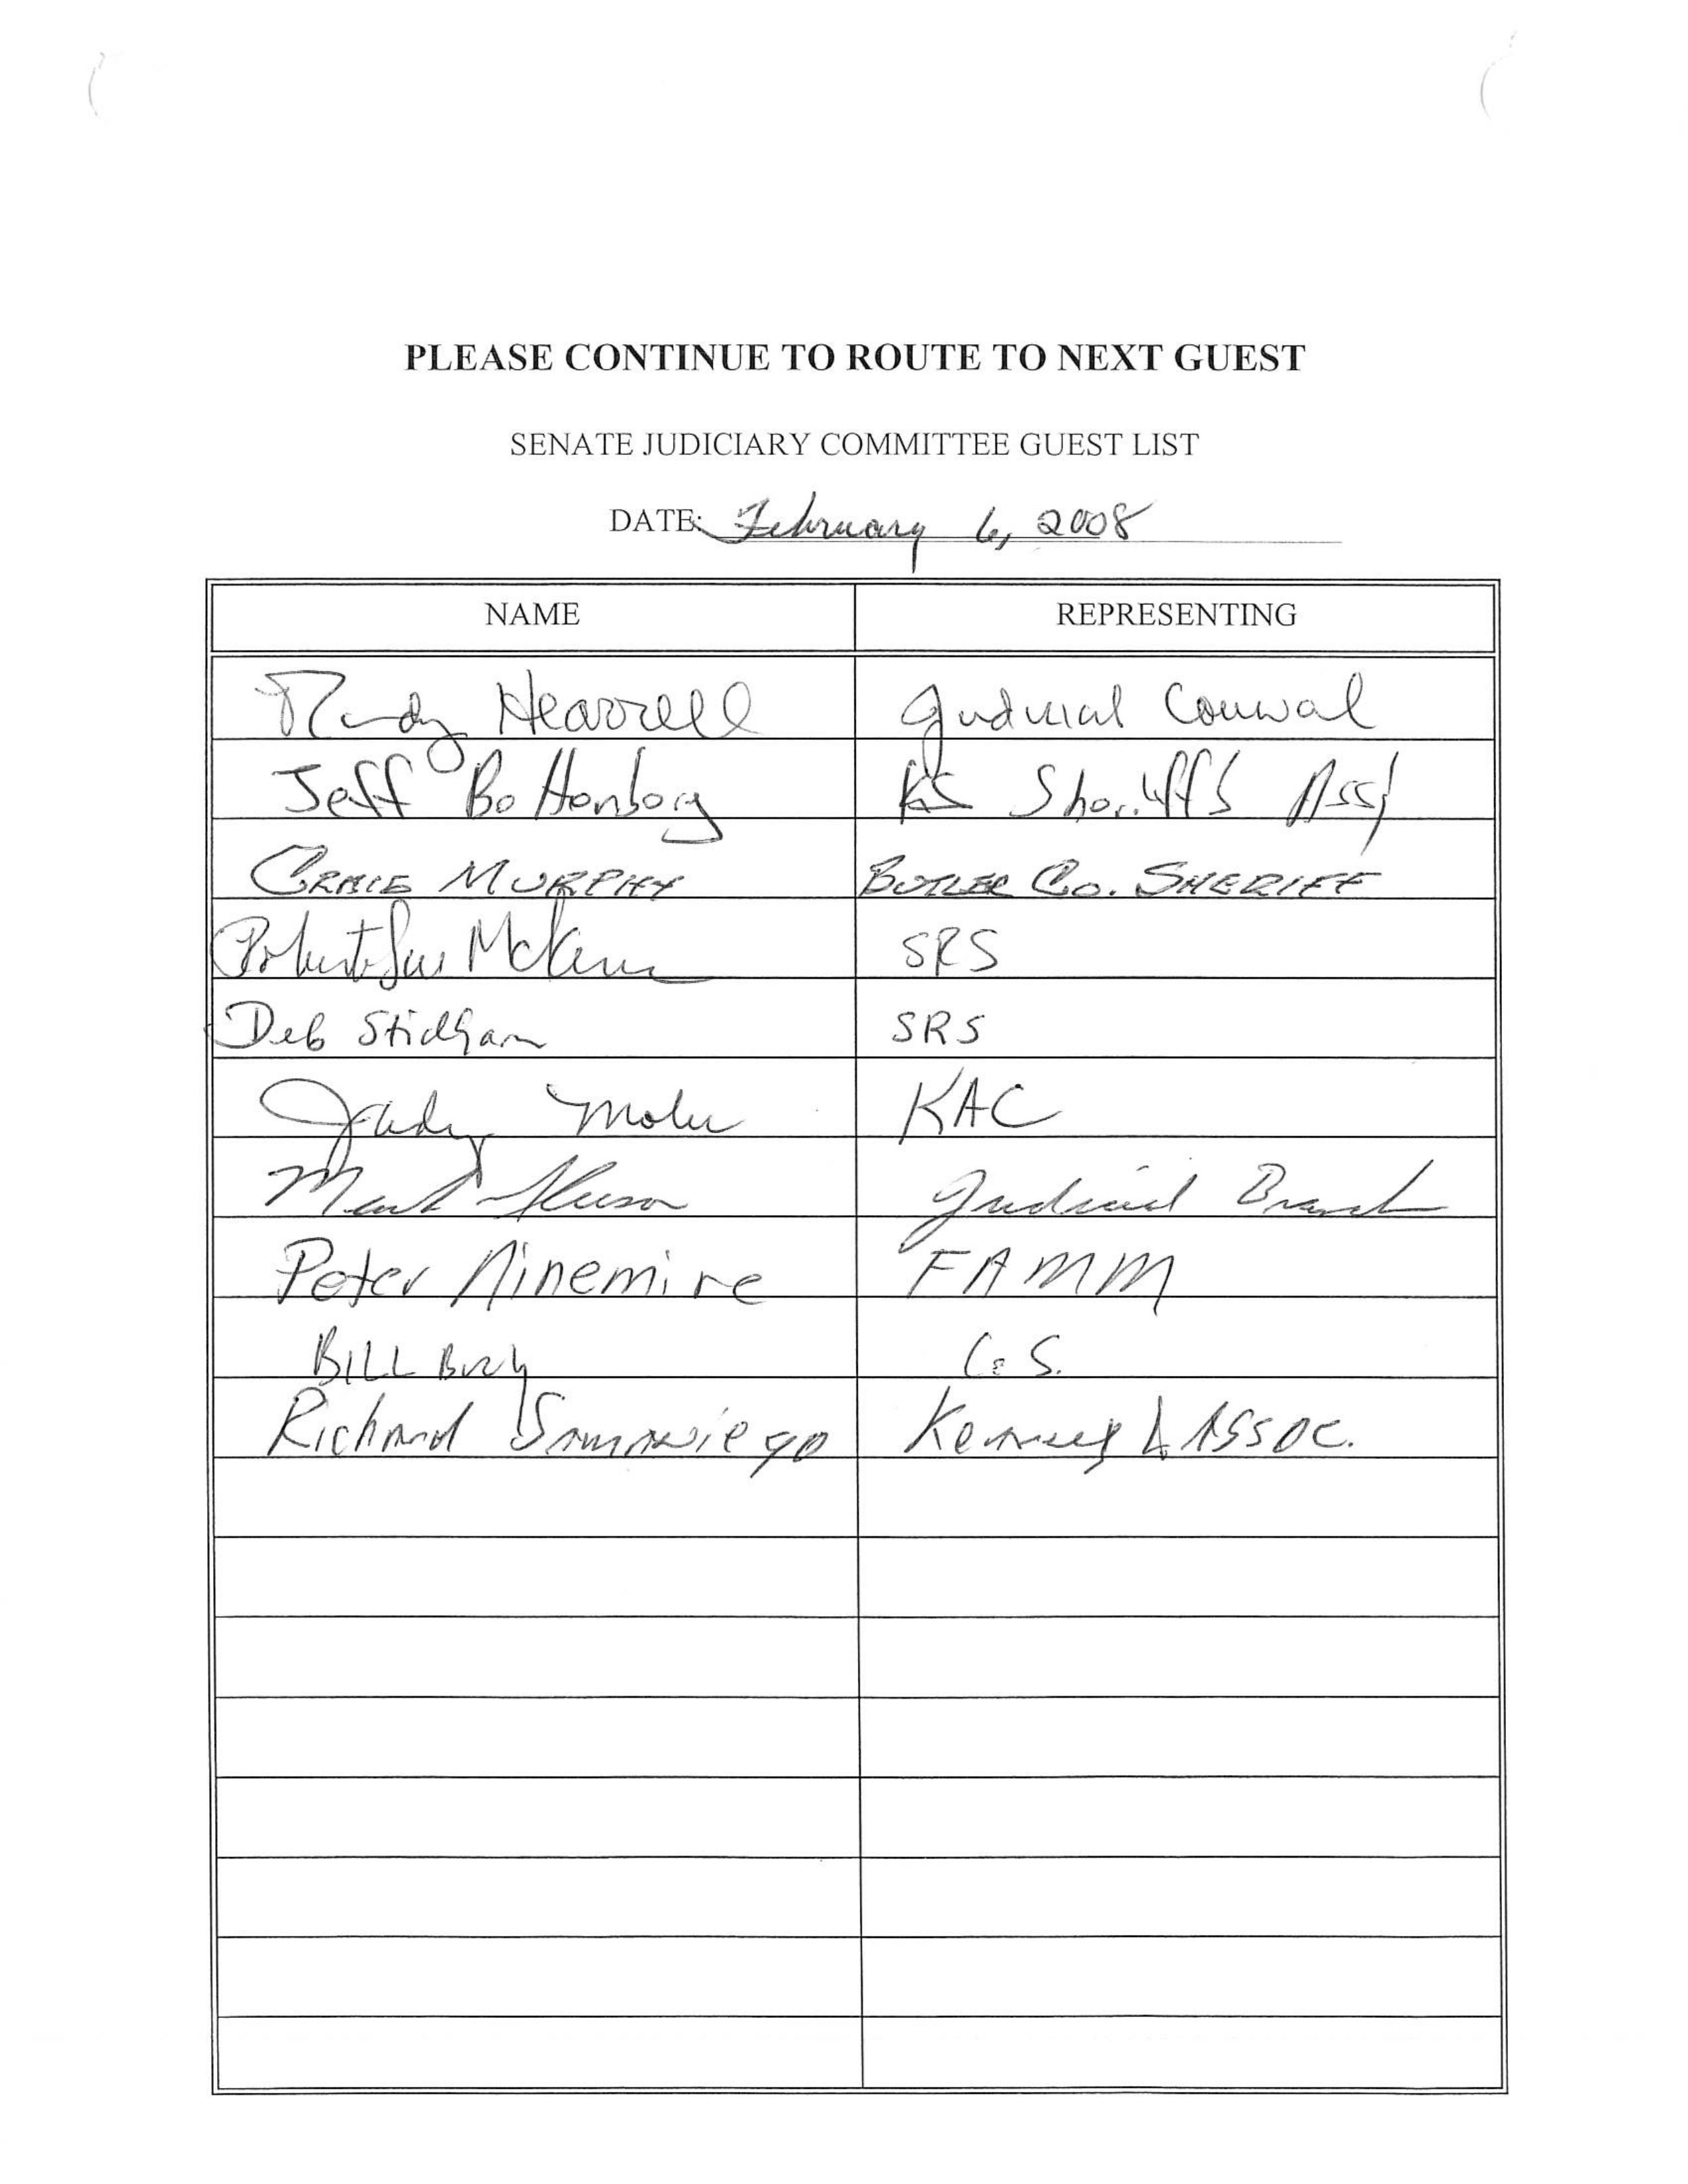 PLEASE CONTINUE TO ROUTE TO NEXT GUEST
SENATE JUDICIARY COMMITTEE GUEST LIST
DATE: February 6, 2008
NAME REPRESENTING
Randy Hearrell Judicial Council
Jeff Bottenberg KS Sheriff's Ass'
CRAIG MURPHY BUTLER CO. SHERIFF
Sue SRS
Deb Stidham SRS
Judy Moler KAC
Mark Gleeson Judicial Branch
Peter Ninemire FAMM
BILL C.S.
Richard Samaniego Kearney & Assoc.